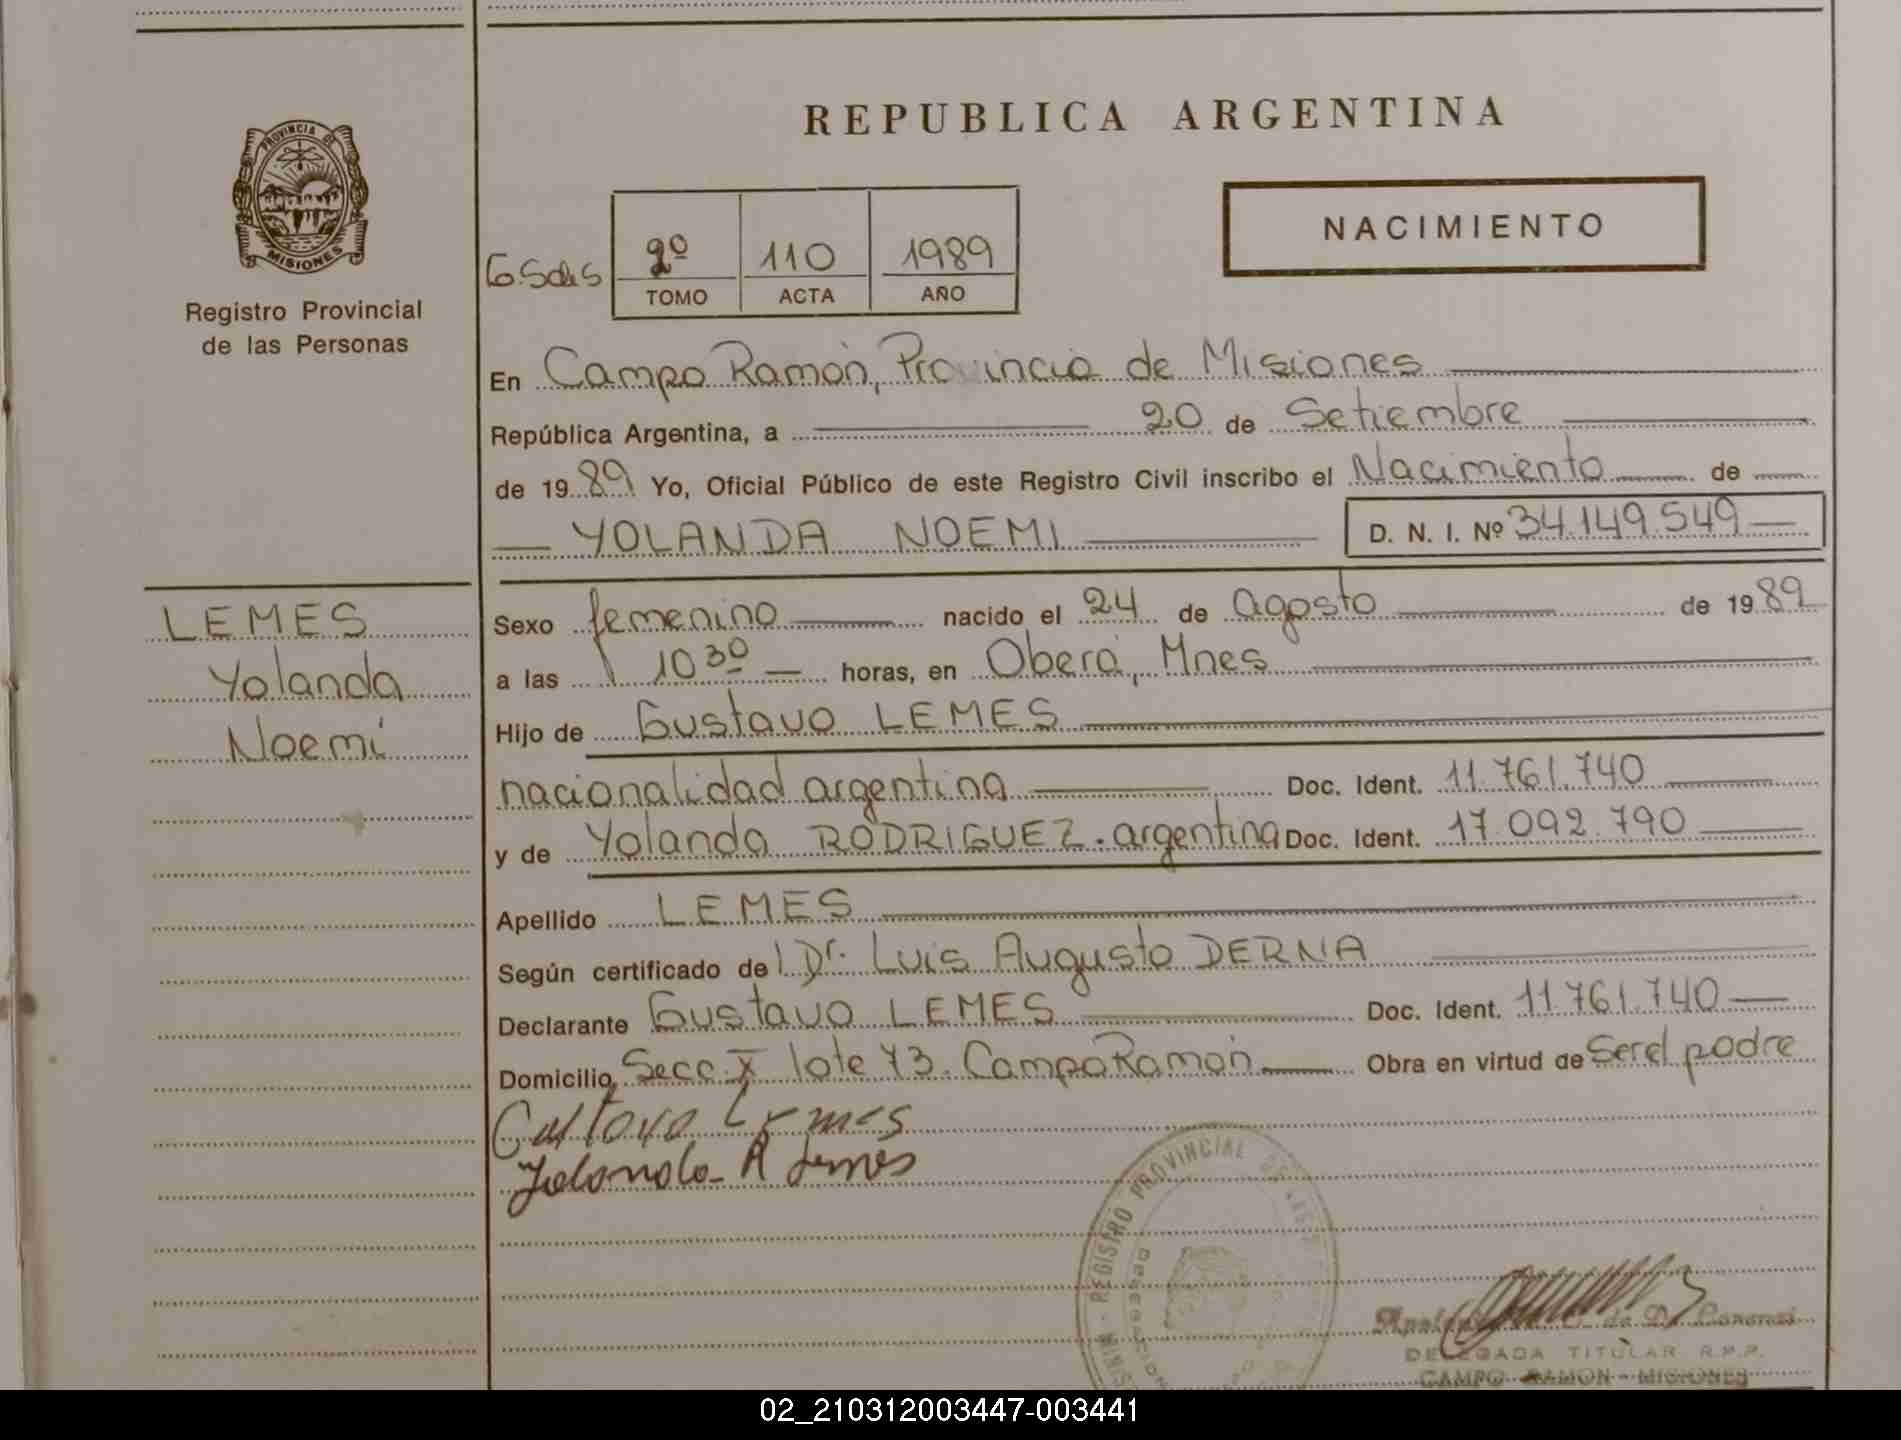 REPUBLICA ARGENTINA
PROVINCIA DE
MISIONES
Registro Provincial
de las Personas
2º 110 1989
TOMO ACTA AÑO
NACIMIENTO
En Campo Ramón, Provincia de Misiones
República Argentina, a 20 de Setiembre
de 1989 Yo, Oficial Público de este Registro Civil inscribo el Nacimiento de
YOLANDA NOEMI D. N. I. Nº 34.149.549
LEMES
Yolanda
Noemí
Sexo femenino nacido el 24 de agosto de 1989
a las 10 30 horas, en Oberá, Mnes
Hijo de Gustavo LEMES
nacionalidad argentina Doc. Ident. 11.761.740
y de Yolanda RODRIGUEZ. argentina Doc. Ident. 17.092.790
Apellido LEMES
Según certificado del Dr. Luis Augusto DERNA
Declarante Gustavo LEMES Doc. Ident. 11.761.740
Domicilio Secc. X lote 73. Campo Ramón Obra en virtud de Ser el padre
Gustavo Lemes
Yolanda R Lemes
REGISTRO PROVINCIAL DE LAS
DELEGACION
DELEGADA TITULAR R.P.P.
CAMPO RAMON - MISIONES
02_210312003447-003441